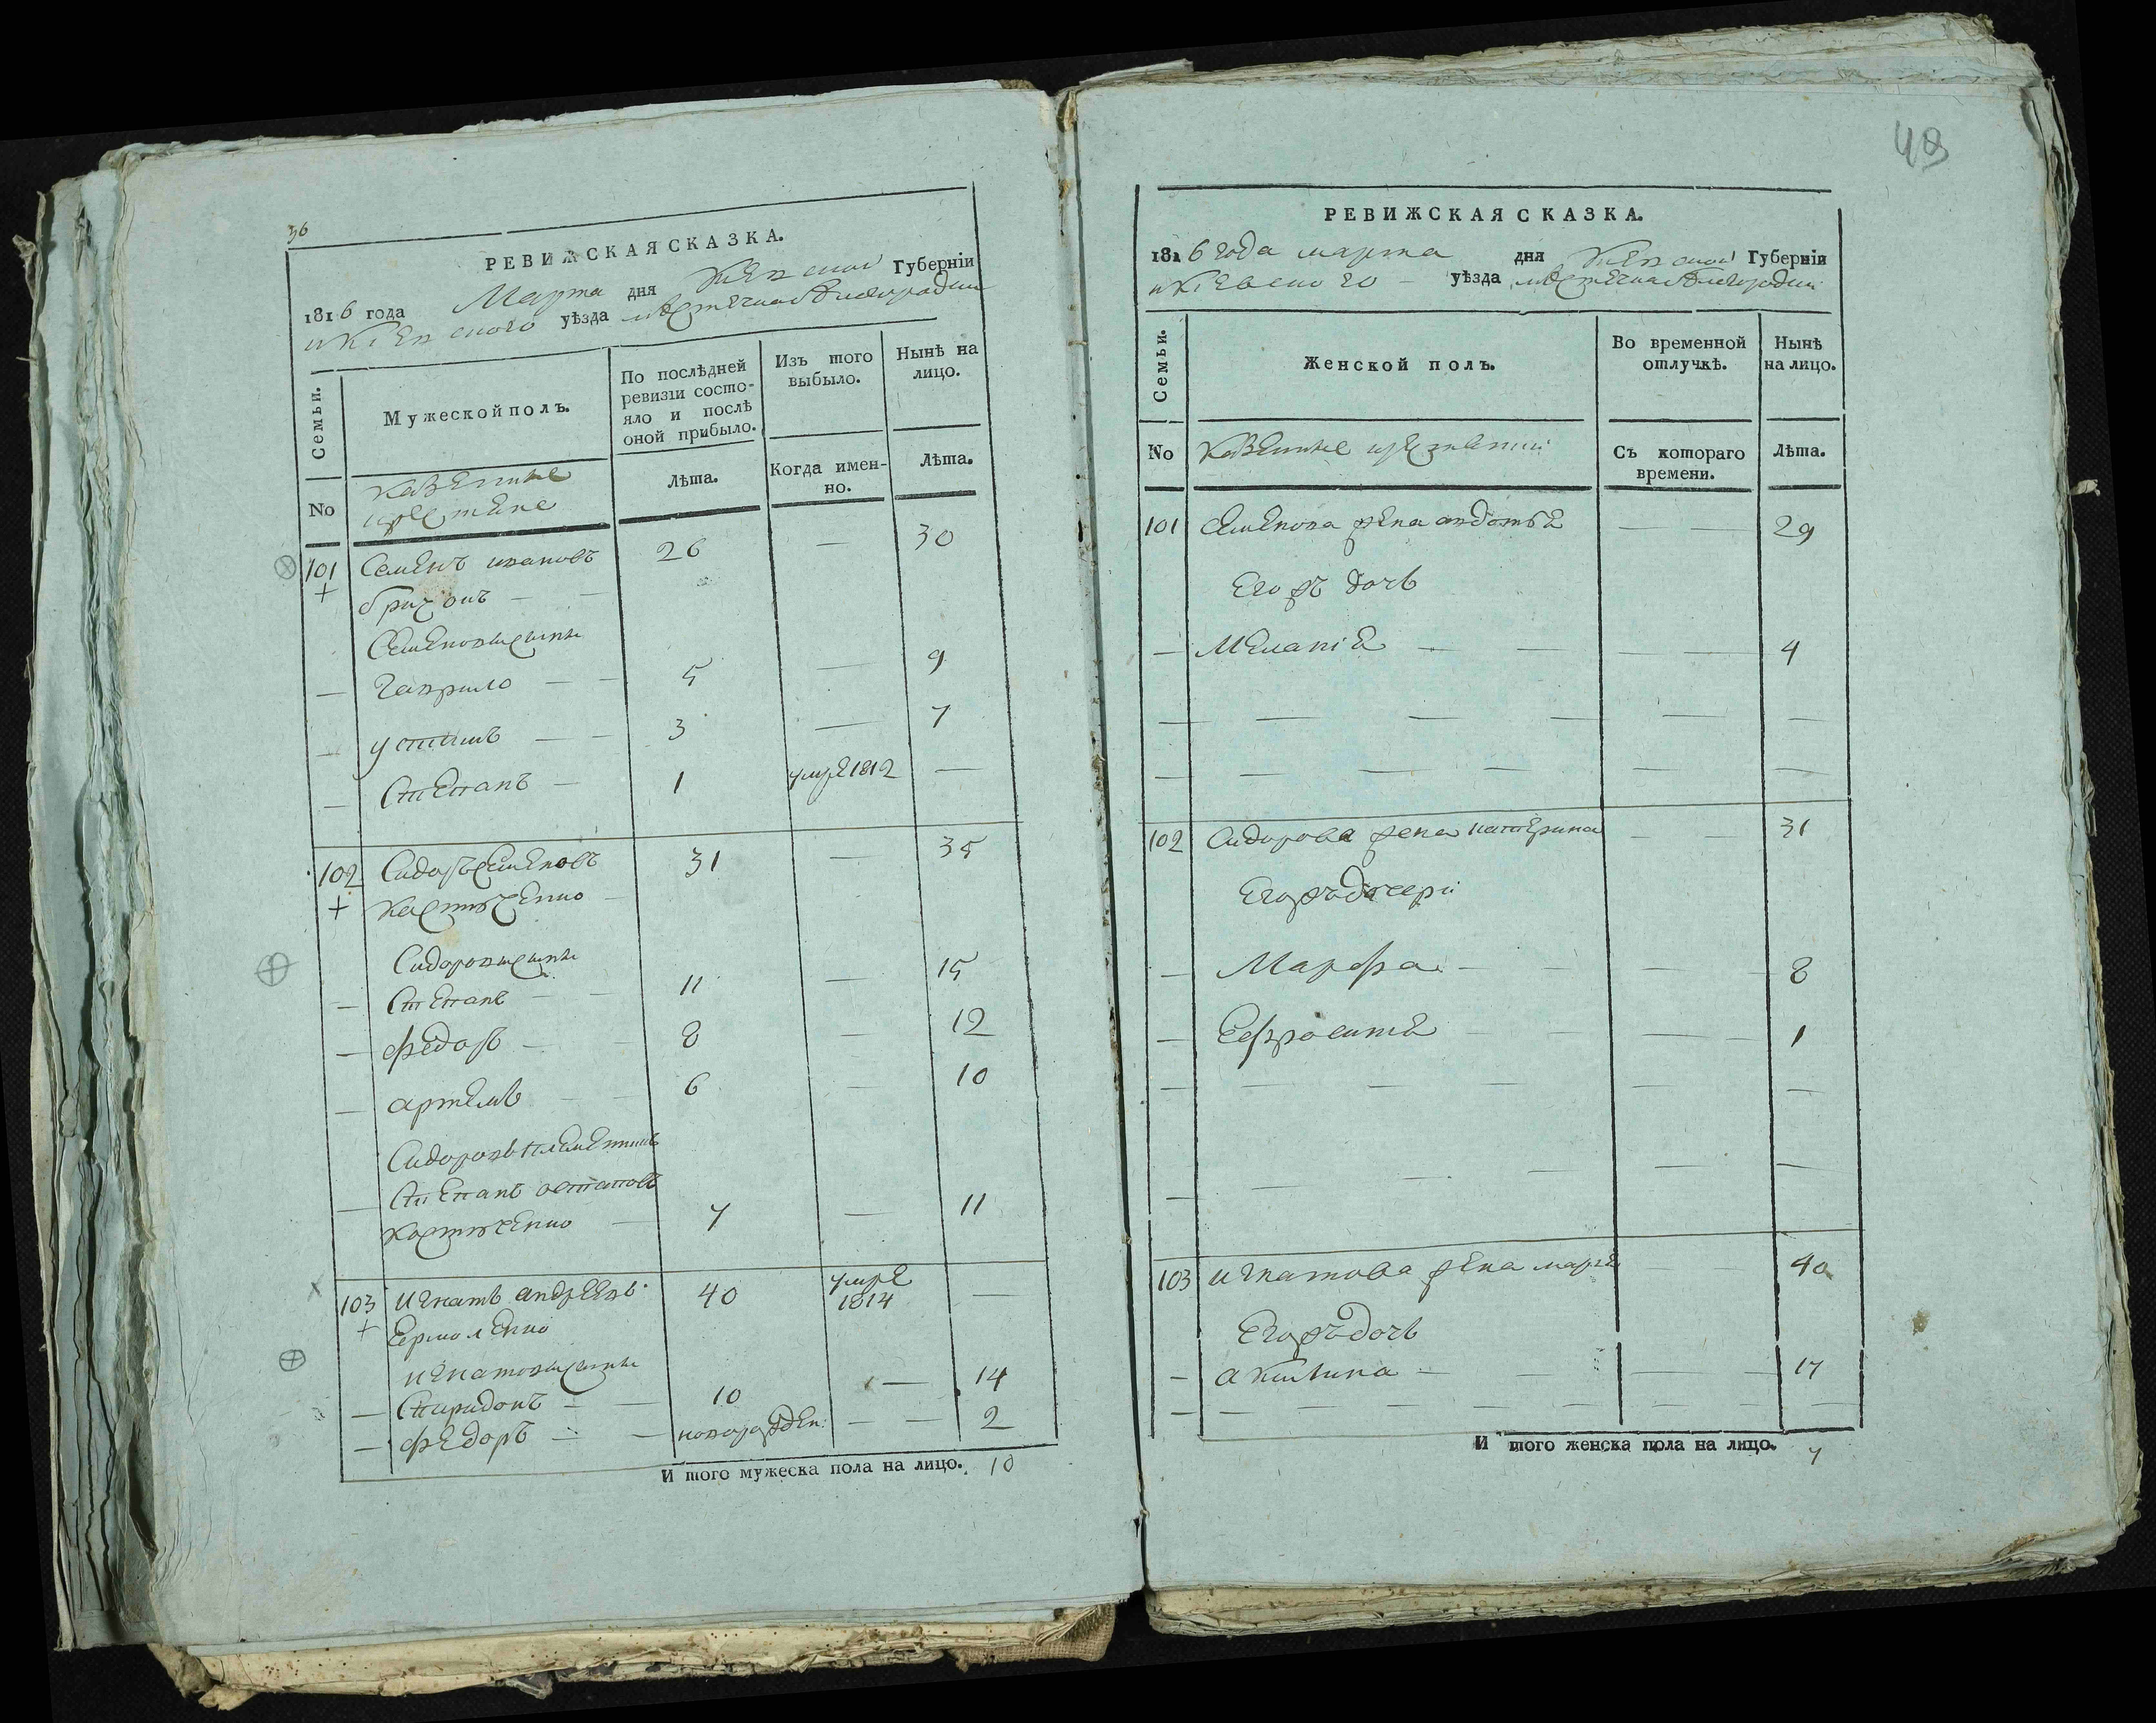 36
РЕВИЖСКАЯ СКАЗКА.
1816 года Марта дня Киевской Губерніи
и Киевского уѣзда местечка Белогородки
Семьи. Мужеской полъ. По послѣдней ревизіи состояло и послѣ оной прибыло. Изъ того выбыло. Нынѣ на лицо.
No Казенные Лѣта. Когда именно. Лѣта.
крестяне
101 Семенъ ивановъ 26 — 30
+ Грищнъ — —
Семеновы сыны
— гаврило — — 5 — 9
— устимъ — — 3 — 7
— Степанъ — 1 умре 1812 —
102 Сидоръ Семеновъ 31 — 35
+ Костюченко —
Сидоровы сыны
— Степанъ — — 11 — 15
— федоръ — — 8 — 12
— артемъ — — 6 — 10
Сидоровъ племенникъ
— Степанъ остаповъ
Костюченко — 7 — 11
103 игнатъ андреевъ 40 умре 1814 —
+ Ермоленко
игнатовы сыны
— Спиридонъ — — 10 — 14
— федоръ — — новорожден: — — 2
И того мужеска пола на лицо. 10
49
РЕВИЖСКАЯ СКАЗКА.
1816 года марта дня Киевской Губерніи
и Киевского — уѣзда местечка Белогородки
Семьи. Женской полъ. Во временной отлучкѣ. Нынѣ на лицо.
No Казенные крестянки Съ котораго времени. Лѣта.
101 Семенова жена авдотья — — 29
Егожъ дочь
— Меланія — — — — 4
— — — — — —
— — — — — —
102 Сидорова жена катерина — — 31
Егожъ дочери
— Марфа — — — — 8
— Ефросинія — — — — 1
— — — — — —
— — — — —
103 игнатова жена марія — — 40
Егожъ дочь
— акилина — — — — 17
— — — — — — — — —
И того женска пола на лицо. 7